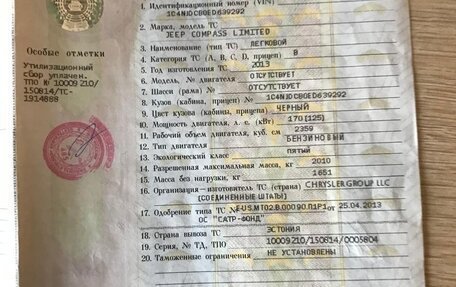 1. Идентификационный номер (VIN)
1C4NJDCB0ED639292
2. Марка, модель ТС
JEEP COMPASS LIMITED
3. Наименование (тип ТС) ЛЕГКОВОЙ
4. Категория ТС (A, B, C, D, прицеп) B
5. Год изготовления ТС 2013
6. Модель, № двигателя ОТСУТСТВУЕТ
7. Шасси (рама) № ОТСУТСТВУЕТ
8. Кузов (кабина, прицеп) № 1C4NJDCB0ED639292
9. Цвет кузова (кабины, прицепа) ЧЕРНЫЙ
10. Мощность двигателя, л. с. (кВт) 170 (125)
11. Рабочий объем двигателя, куб. см 2359
12. Тип двигателя БЕНЗИНОВЫЙ
13. Экологический класс ПЯТЫЙ
14. Разрешенная максимальная масса, кг 2010
15. Масса без нагрузки, кг 1651
16. Организация—изготовитель ТС (страна) CHRYSLER GROUP LLC
(СОЕДИНЕННЫЕ ШТАТЫ)
17. Одобрение типа ТС № E-US.MT02.B.00090.П1Р1 от 25.04.2013
ОС "САТР-ФОНД"
18. Страна вывоза ТС ЭСТОНИЯ
19. Серия, № ТД, ТПО 10009210/150814/0005804
20. Таможенные ограничения НЕ УСТАНОВЛЕНЫ
Особые отметки
Утилизационный
сбор уплачен.
ТПО № 10009210/
150814/ТС-
1914888